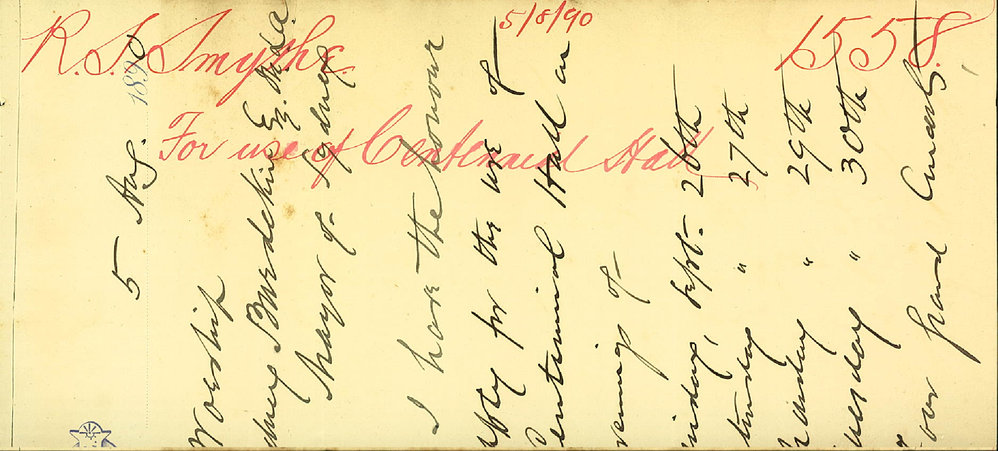 R. S. Smythe. 5/8/90 1558.
For use of Centennial Hall
5 Aug. 1890
Worship
dney Burdekin Esq. M.L.A.
Mayor of Sydney
I have the honour
pply for the use of
Centennial Hall on
venings of
riday, Sept. 26th
turday " 27th
onday " 29th
uesday " 30th
our grand Concerts